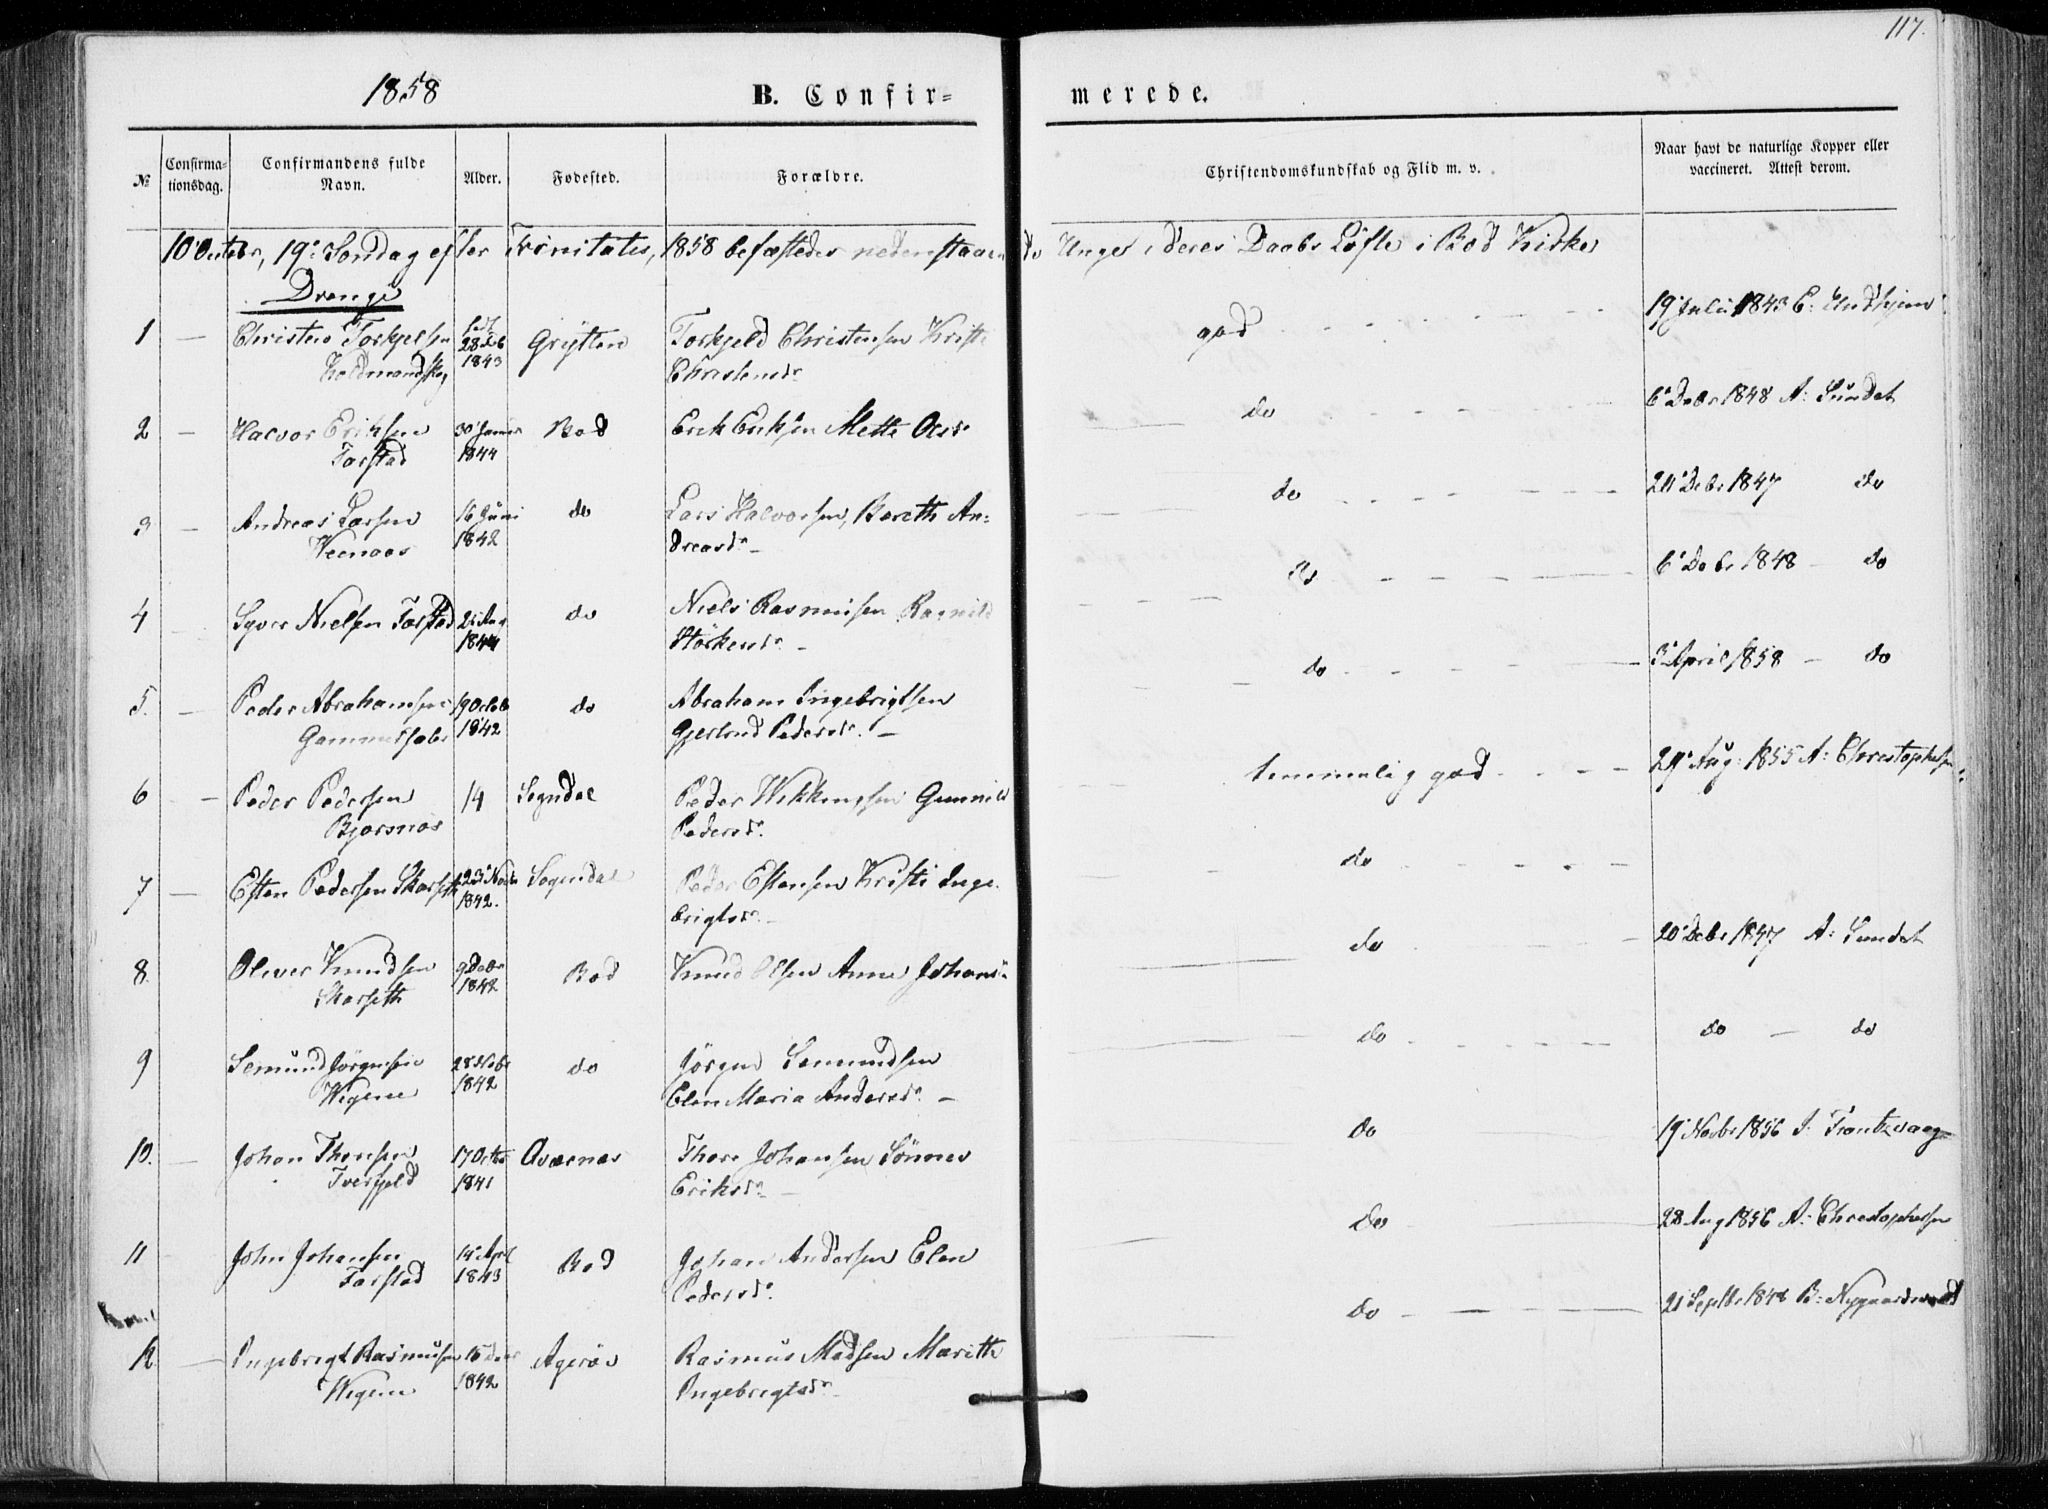 117.
1858
B. Confir=
merede.
№
Confirma-
tionsdag.
Confirmandens fulde
Navn.
Alder.
Fødested.
Forældre.
Christendomskundskab og Flid m. v.
Naar havt de naturlige Kopper eller
vaccineret. Attest derom.
10 Octobr, 19: Søndag efter Trinitatis, 1858 befæstedes nedenstaaende Unge i deres Daabs Løfte i Bod Kirke
Drenge
1 — Christen Torkjelsen 28 1843 Grytten Torkjeld Christensen Kristi Christensdr god 19 Juli 1843 E:
2 — Halvor Eriksen Torstad 30 Januar 1844 Bod Erik Eriksen Mette Olsdr do 6 Decbr 1848 A: Sundet
3 — Andreas Larsen Veenaas 16 Juni 1842 do Lars Halvorsen, Bereth An=
dreasdr — do Debr 1847 do
4 — Syver Nielsen Torstad Aug 1844 do Niels Rasmusen Ragnild do 6 Debr 1848 — do
5. — Peder Abrahamsen 19 Octob 1842 do Abraham Ingebrigtsen
Gjertrud Pedersdr. — do 3 April 1858 — do
6 — Peder Pedersen Bjørsnos 14 Sogndal Peder Gunnild
Pedersdr. temmelig god 29 Aug: 1855 A: Christophersen
7 — Esten Pedersen Skarseth 23 Novbr 1842. Sogndal Peder Estensen Kristi Inge-
brigtsdr. — do
8. Oliver Knudsen Skarseth 9 Decbr 1842 Bod Knud Olsen Anne Johansdr do 20 Debr 1847 A: Sundet
9 Semund Jörgensen Wigene 28 Novbr 1842 do Jörgen Semundsen
Elen Maria Andersdr. — do do — do
10. — Johan Thoresen 17 Octbr 1841 Averøes Thore Johansen Sönnev
Eriksdr — do 19 Novbr 1856 J. Frantzvaag
11 John Johansen Torstad 14 April 1843 Bod Johan Andersen Elen
Pedersdr. do 28 Aug 1856 A: Christophersen
12 — Ingebrigt Rasmusen Wigene 16 1842 Agerøe Rasmus Madsen Marithe
Ingebrigtsdr do 21 Septbr B: Nygaardsvold